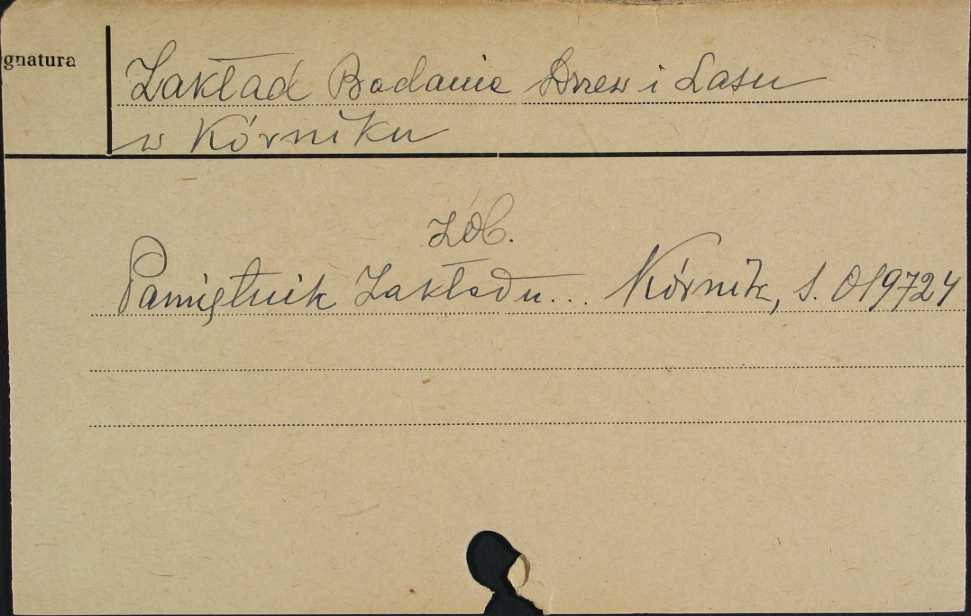 gnatura
Zakład Badania Drzew i Lasu
w Kórniku
zob.
Pamiętnik Zakładu... Kórnik, s. 019724